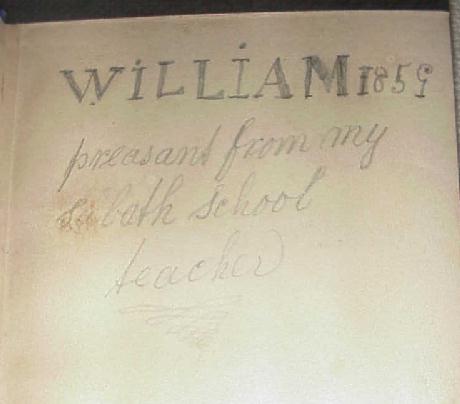 WiLLiAM 1859
preasant from my
sabath school
teacher